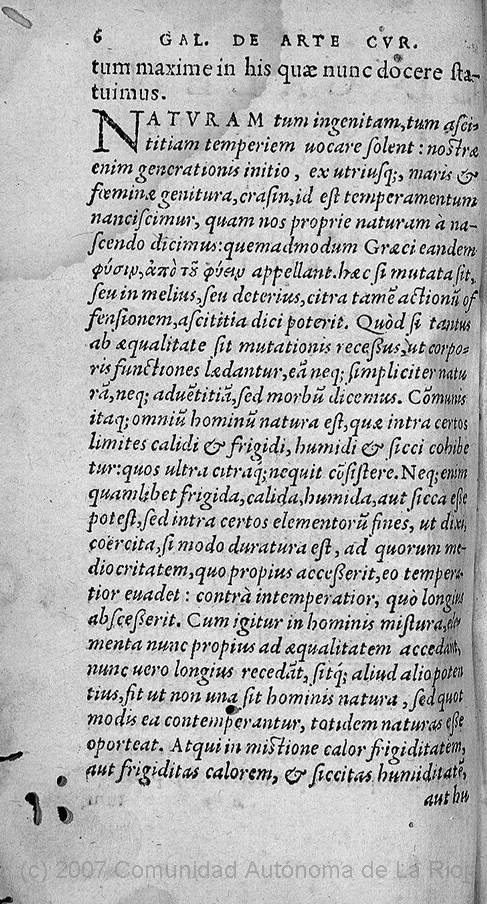 6 GAL. DE ARTE CVR.
tum maxime in his quæ nunc docere sta-
tuimus.
NATVRAM tum ingenitam, tum asci-
titiam temperiem uocare solent: nostræ
enim generationis initio, ex utriusq;, maris &
fœminæ genitura, crasin, id est temperamentum
nanciscimur, quam nos proprie naturam à na-
scendo dicimus: quemadmodum Græci eandem
φύσιν, ἀπὸ τοῦ φύειν appellant. hæc si mutata sit,
seu in melius, seu deterius, citra tamẽ actionũ of
fensionem, ascititia dici poterit. Quòd si tantus
ab æqualitate sit mutationis recessus, ut corpo-
ris functiones lædantur, eã neq; simpliciter natu
rã, neq; aduẽtitiã, sed morbũ dicemus. Cõmunis
itaq; omniũ hominũ natura est, quæ intra certos
limites calidi & frigidi, humidi & sicci cohibe
tur: quos ultra citraq́; nequit cõsistere. Neq; enim
quamlibet frigida, calida, humida, aut sicca esse
potest, sed intra certos elementorũ fines, ut dixi,
coërcita, si modo duratura est, ad quorum me-
diocritatem, quo propius accesserit, eo tempera-
tior euadet: contrà intemperatior, quò longius
abscesserit. Cum igitur in hominis mistura, ele-
menta nunc propius ad æqualitatem accedant,
nunc uero longius recedãt, sitq́; aliud alio poten
tius, fit ut non una sit hominis natura, sed quot
modis ea contemperantur, totidem naturas esse
oporteat. Atqui in mistione calor frigiditatem,
aut frigiditas calorem, & siccitas humiditatẽ,
aut hu
(c) 2007 Comunidad Autónoma de La Rioj